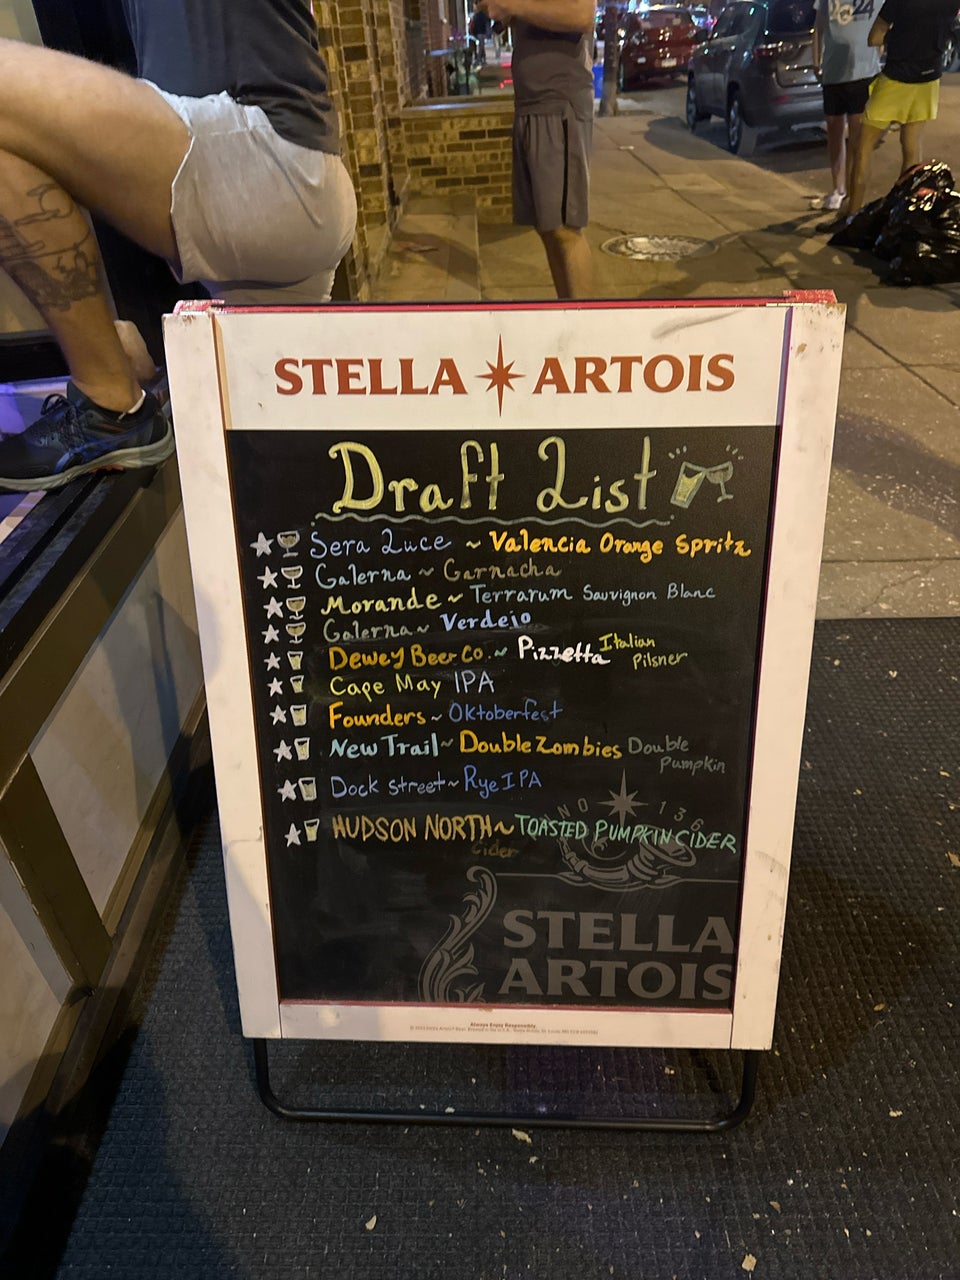 24
STELLA ARTOIS
Draft List
Sera Luce ~ Valencia Orange Spritz
Galerna ~ Garnacha
Morande ~ Terrarum Sauvignon Blanc
Galerna ~ Verdejo
Dewey Beer Co. ~ Pizzetta Italian Pilsner
Cape May IPA
Founders ~ Oktoberfest
New Trail ~ Double Zombies Double Pumpkin
Dock Street ~ Rye IPA
HUDSON NORTH ~ TOASTED PUMPKIN CIDER
Cider
STELLA
ARTOIS
Always Enjoy Responsibly.